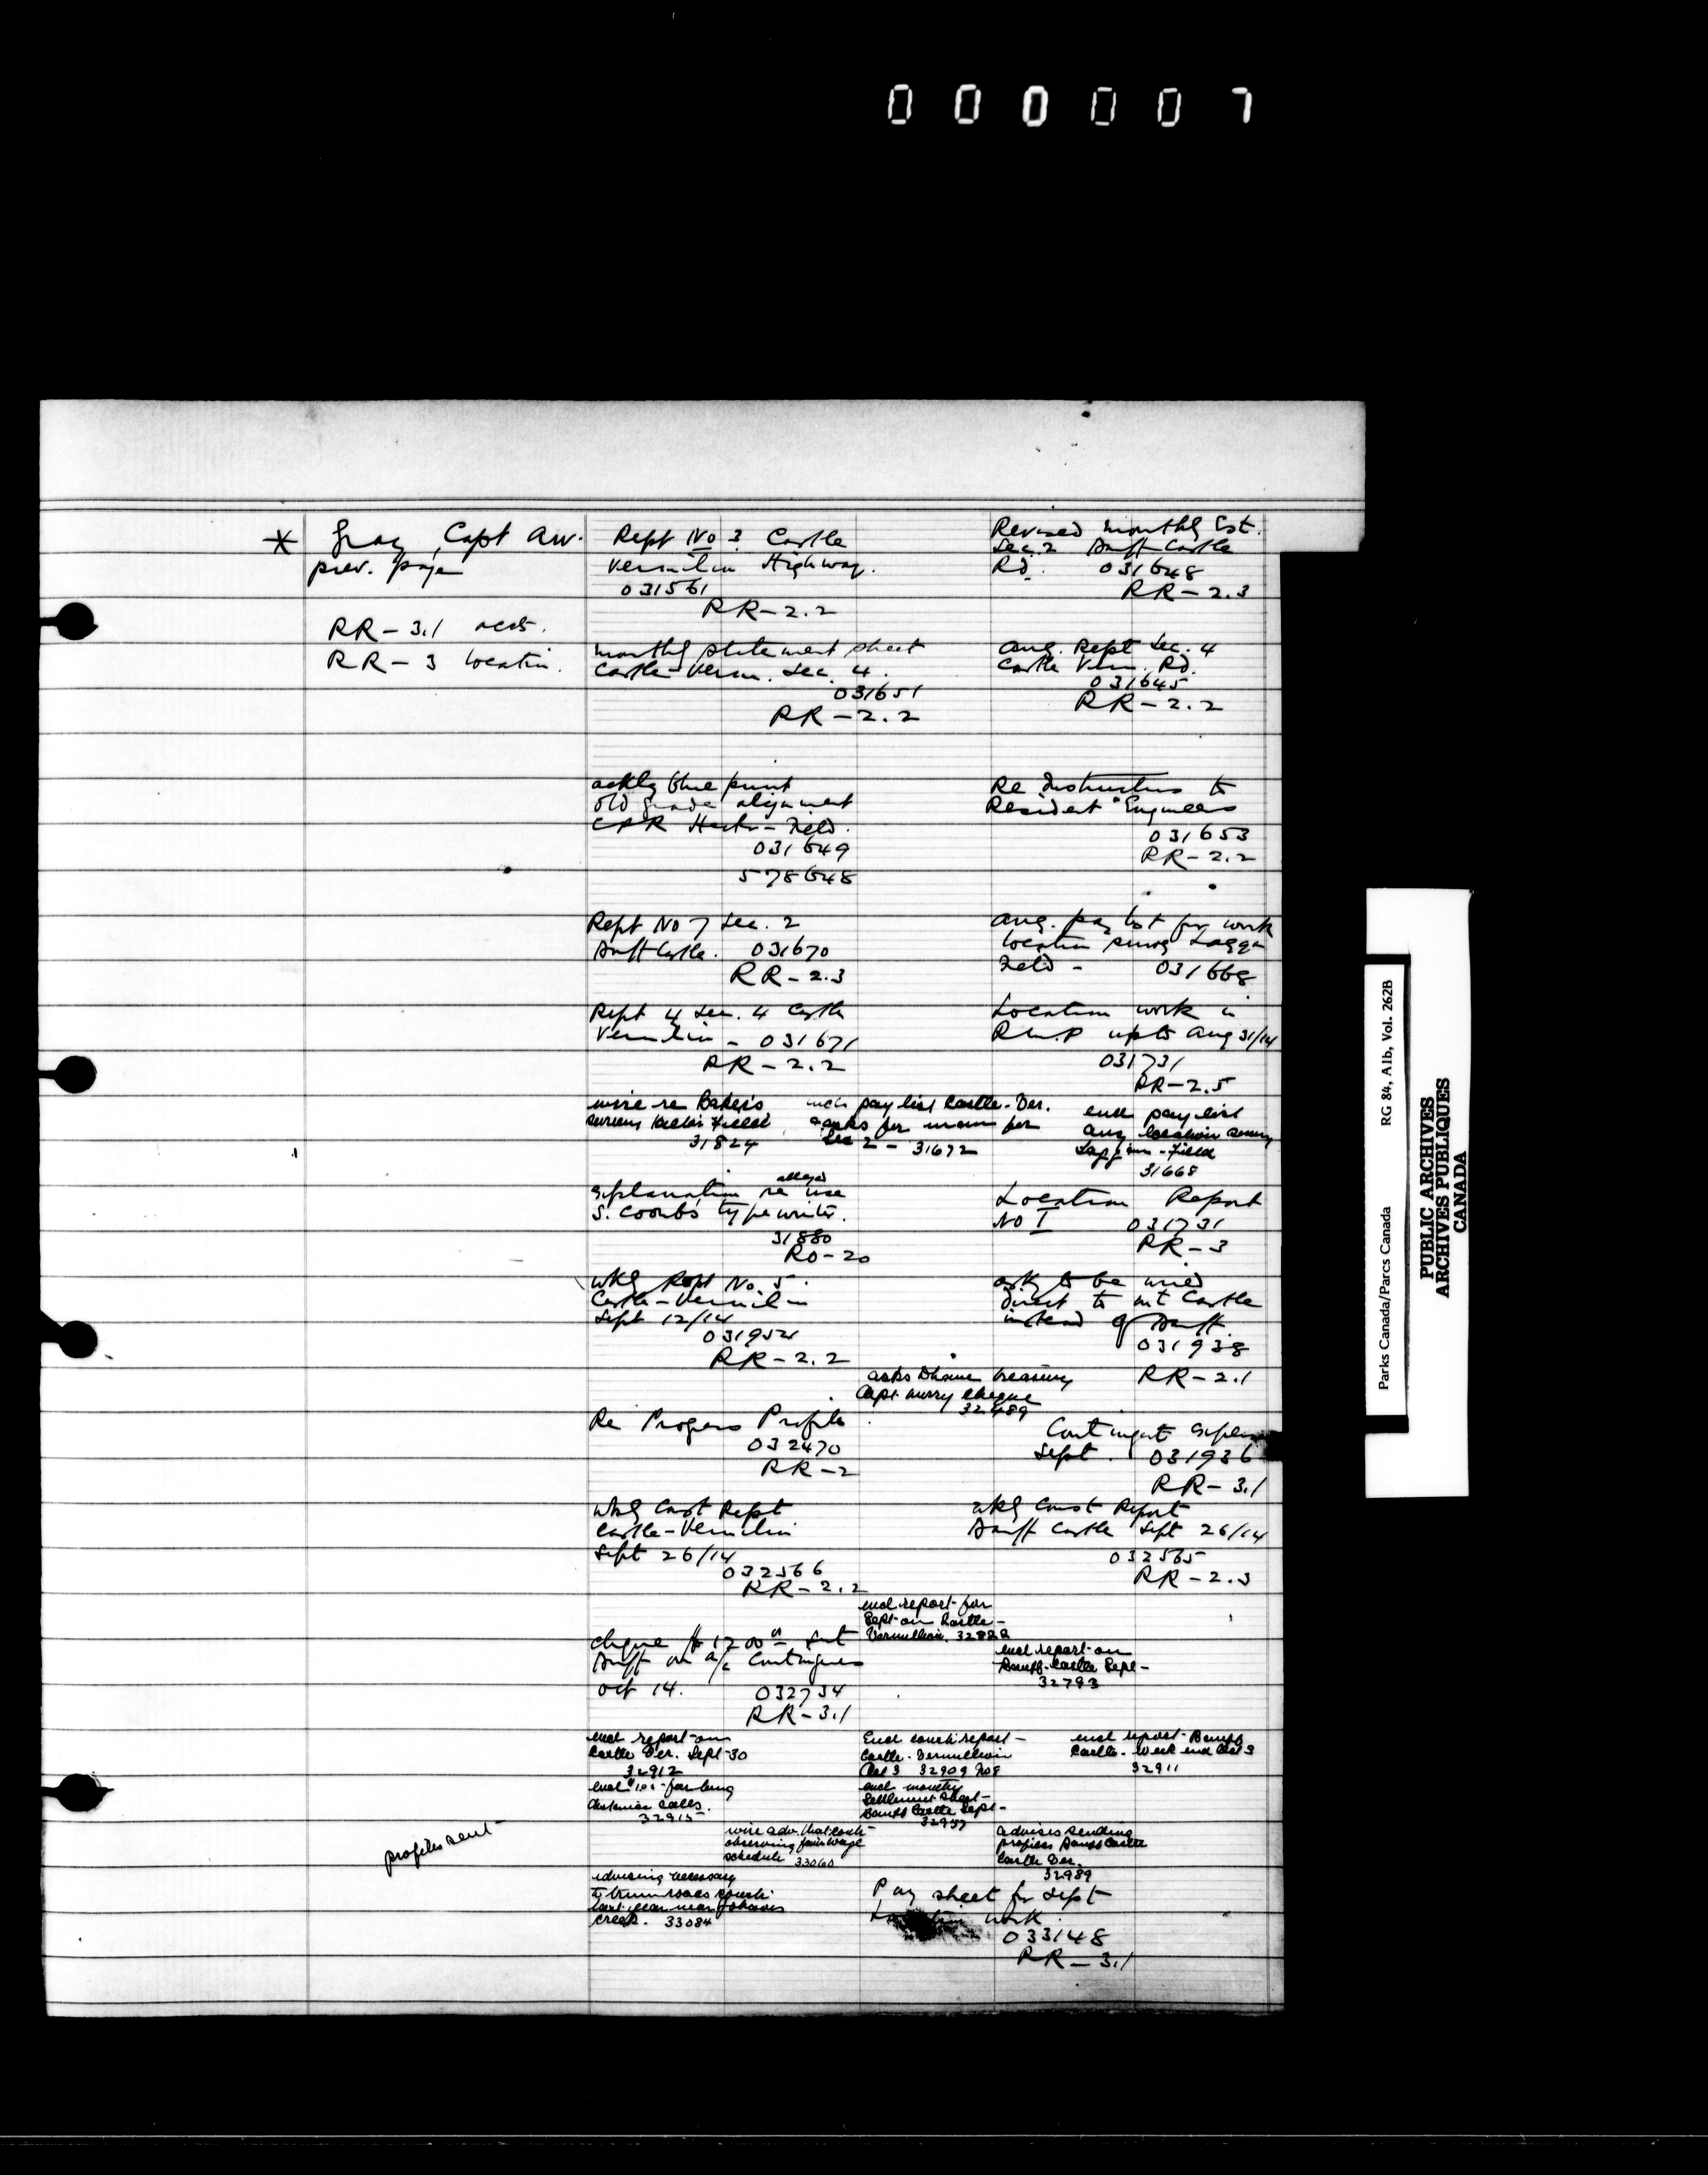 000007
* Gray, Capt AW.
prev. page
RR-3.1 accts.
RR-3 Location.
Rept No 3 Castle
Vermilion Highway.
031561
RR-2.2
Revised monthly Est.
Sec. 2 Banff-Castle
Rd. 031648
RR-2.3
monthly statement sheet
Castle-Verm. Sec. 4.
031651
RR-2.2
Aug. Rept Sec. 4
Castle Verm. Rd.
031645
RR-2.2
ackg blue print
old grade alignment
CPR Hector-Field.
031649
578648
Re Instructions to
Resident Engineers
031653
RR-2.2
Rept No 7 Sec. 2
Banff Castle. 031670
RR-2.3
Aug. pay list for work
location survey Laggan
Field - 031668
Rept 4 Sec. 4 Castle
Vermilion - 031671
RR-2.2
Location work in
R.M.P up to Aug 31/14
031731
RR-2.5
wire re Baker's
survey Field
31824
encls pay list Castle-Ver.
asks for man for
Sec 2 - 31672
encl pay list
Aug location survey
Laggan - Field
31668
Explanation re alleged use
S. Coombs typewriter.
31880
RO-20
Location Report
No I 031731
RR-3
Wkly Rept No. 5.
Castle-Vermilion
Sept 12/14
031952
RR-2.2
asks to be wired
direct to Mt Castle
instead of Banff.
031938
RR-2.1
asks Dhave treasury
Capt. hurry cheque
32489
Re Progress Profiles
032470
RR-2
Contingent Expenses
Sept. 031936
RR-3.1
Wkly Const Rept
Castle-Vermilion
Sept 26/14
032566
RR-2.2
Wkly Const Report
Banff Castle Sept 26/14
032565
RR-2.3
encl report for
Sept on Castle-
Vermillion. 32888
cheque $1200 00 sent
Banff on a/c Contingencies
Oct 14. 032734
RR-3.1
encl report on
Banff-Castle Sept-
32793
encl report on
Castle Ver. Sept-30
32912
Encl const report-
Castle-Vermillion
Oct 3 32909 908
encl report-Banff
Castle-week end Oct 3
32911
encl for long
distance calls.
32915
encl monthly
Settlement sheet-
Banff Castle Sept-
32957
profiles sent
wire adv. that contr
observing fair wage
schedule 33060
advises sending
profiles Banff Castle
Castle Ver.
32989
advising necessary
to trim roads const.
last year near Johnson
creek. 33084
Pay sheet for Sept
Location work.
033148
RR-3.1
Parks Canada/Parcs Canada RG 84, A1b, Vol. 262B
PUBLIC ARCHIVES
ARCHIVES PUBLIQUES
CANADA